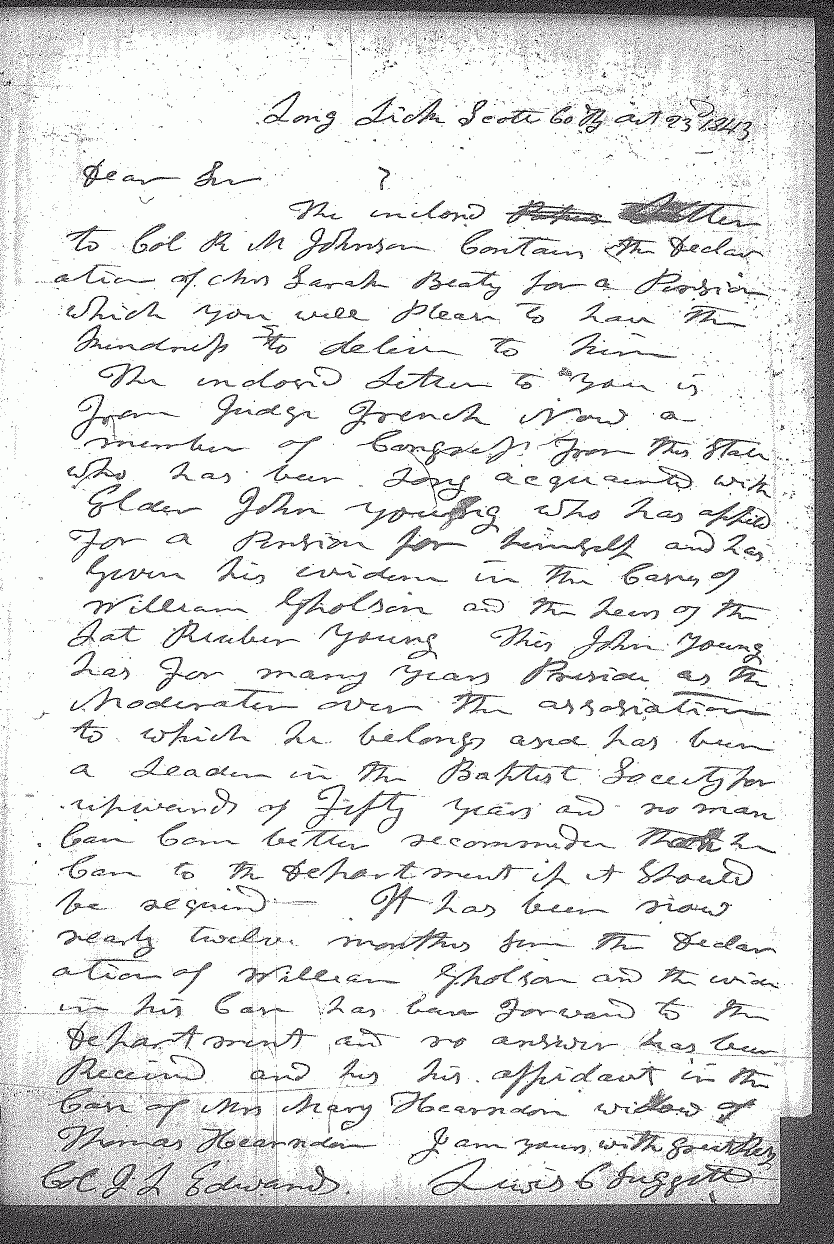 Long Lick Scott Co Ky Oct 23d 1843
Dear Sir
The inclosd Letter
to Col R M Johnson Contains the Declar
ation of Mrs Sarah Beaty for a Pension
which you will Please to have the
kindness to deliver to him
The inclosed Letter to you is
from Judge French Now a
member of Congress from this State
who has been Long acquainted with
Elder John young who has applied
for a Pension for himself and has
Given his evidence in the Cases of
William Gholson and the heirs of the
Lat Reuben Young This John young
has for many years Preside as the
Moderator over the association
to which he belongs and has been
a Leader in the Baptist Society for
upwards of Fifty years and no man
Can Com better recommended than he
Can to the Department if it Should
be required — It has been now
nearly twelve months since the Declar
ation of William Gholson and the
in his Case has been forward to the
Department and no answer has been
Received and his his affidavit in the
Case of Mrs Mary Hearndon widow of
Thomas Hearndon I am yours with great
Col. J L Edwards. Lewis C Suggett